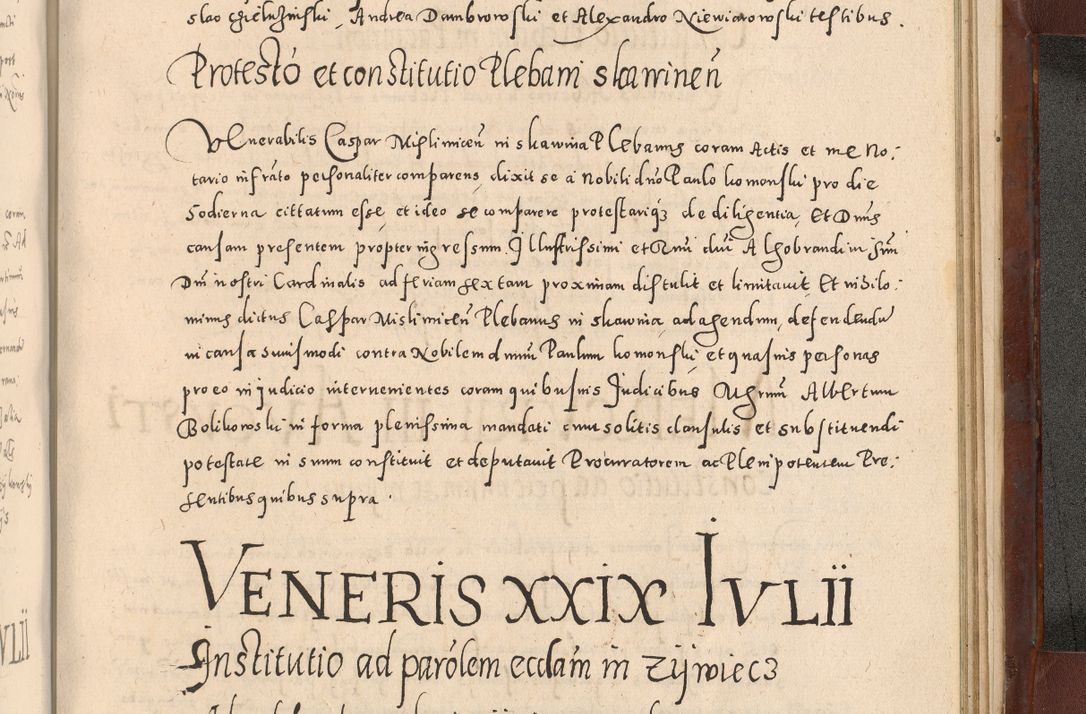 slao Gzielzinski, Andrea Dambrowski et Alexandro Niewiarowski testibus.
Protestō et constitutio Plebani skawinen̄
Venerabilis Caspar Mislimicen̄ in skawina Plebanus coram Actis et me No:
tario infrāto personaliter comparens, dixit se a nobili dn̄o Paulo komonski pro die
hodierna cittatum esse, et ideo se comparere protestariq̄ȝ de diligentia, Et Dnūs
causam presentem propter ingressum Illustrissimi et Rmī dnī Alhobrandini Smī
Dnī nostri Cardinalis ad feriam sextam proximam distulit et limitauit Et nihilo:
minus dictus Caspar Mislimicen̄ Plebanus in skawina, ad agendum, defendendū
in causa huiusmodi contra Nobilem dnum Paulum komonski, et quasuis personas
pro eo in judicio interuenientes coram quibusuis Judicibus Mgrum̄ Albertum
Bolikowski in forma plenissima mandati cum solitis clausulis et substituendi
potestate in suum constituit et deputauit Procuratorem ac Plenipotentem Pre:
sentibus quibus supra.
VENERIS XXIX IVLII
Institutio ad parólem eccłam in zijwiecz